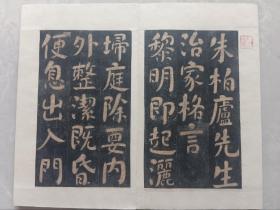 朱柏廬先生
治家格言
黎明即起灑
埽庭除要内
外整潔既昏
便息出入門